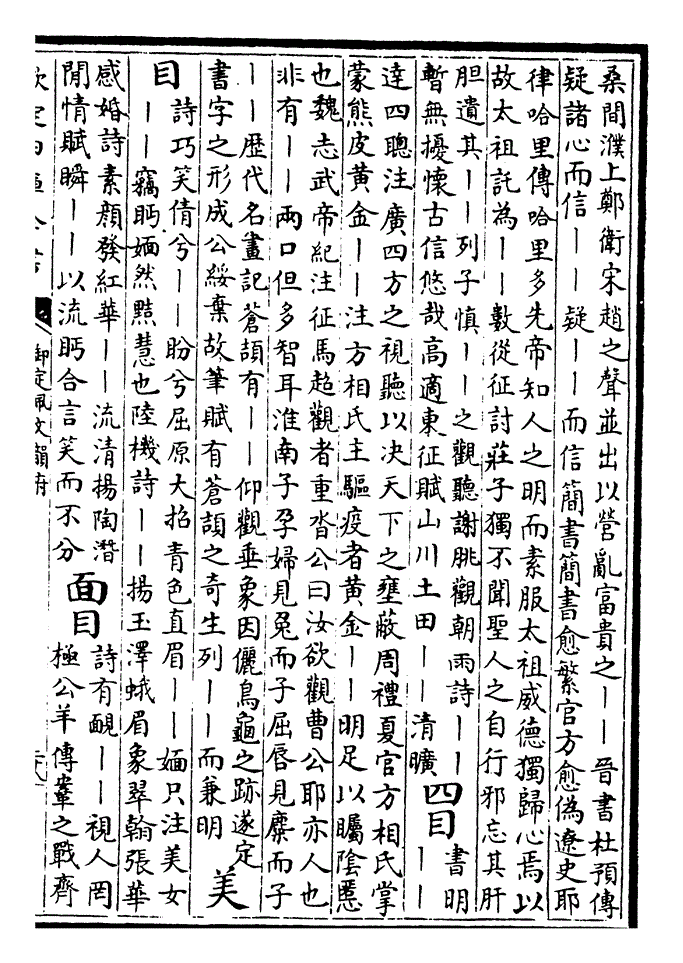 桑間濮上鄭衛宋趙之聲並出以營亂富貴之丨丨晉書杜預傳
疑諸心而信丨丨疑丨丨而信簡書簡書愈繁官方愈偽遼史耶
律哈里傳哈里多先帝知人之明而素服太祖威德獨歸心焉以
故太祖託為丨丨數從征討莊子獨不聞聖人之自行邪忘其肝
胆遺其丨丨列子慎丨丨之觀聽謝朓觀朝雨詩丨丨
暫無擾懷古信悠哉高適東征賦山川土田丨丨清曠
四目
書明
丨丨
達四聰注廣四方之視聽以决天下之壅蔽周禮夏官方相氏掌
蒙熊皮黃金丨丨注方相氏主驅疫者黃金丨丨明足以矚隂慝
也魏志武帝紀注征馬超觀者重沓公曰汝欲觀曹公耶亦人也
非有丨丨兩口但多智耳淮南子孕婦見兔而子屈唇見麋而子
丨丨歷代名畫記蒼頡有丨丨仰觀垂象因儷鳥龜之跡遂定
書字之形成公綏棄故筆賦有蒼頡之奇生列丨丨而兼明
美
目
詩巧笑倩兮丨丨盼兮屈原大招青色直眉丨丨媔只注美女
丨丨竊眄媔然黠慧也陸機詩丨丨揚玉澤蛾眉象翠翰張華
感婚詩素顏發紅華丨丨流清揚陶潛
閒情賦瞬丨丨以流眄合言笑而不分
面目
詩有靦丨丨視人罔
極公羊傳鞌之戰齊
御定佩文韻府